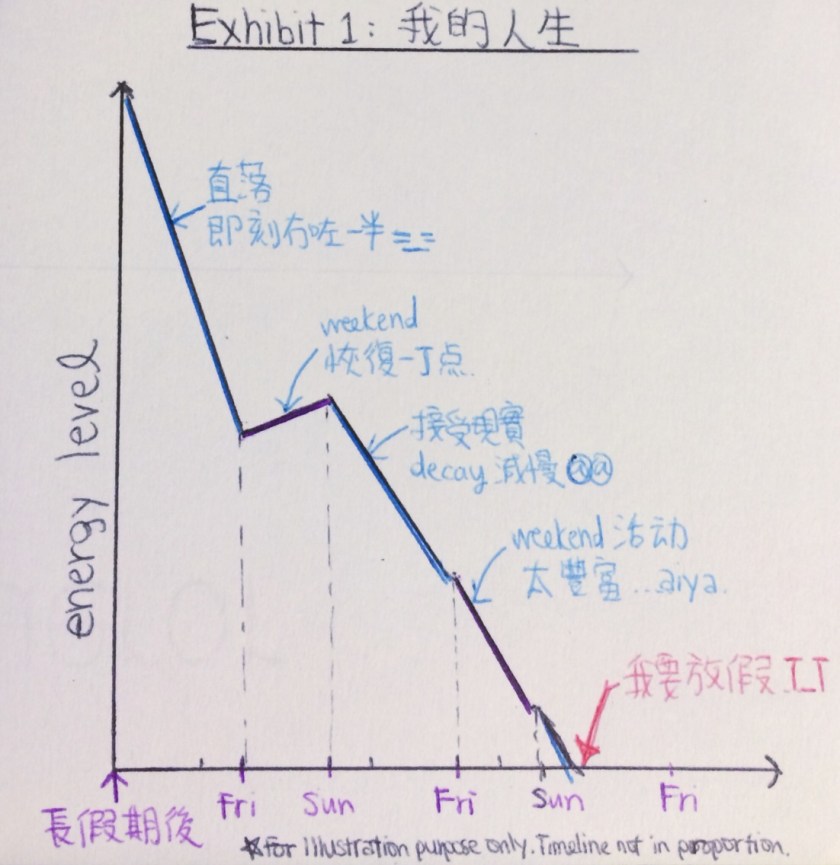 Exhibit 1: 我的人生
直落
即刻冇咗一半 =_=
weekend
恢復一丁点.
接受現實
decay 減慢 @@
weekend 活动
太豐富...aiya.
我要放假 T_T
energy level
Fri Sun Fri Sun Fri
長假期後
*for illustration purpose only. Timeline not in proportion.